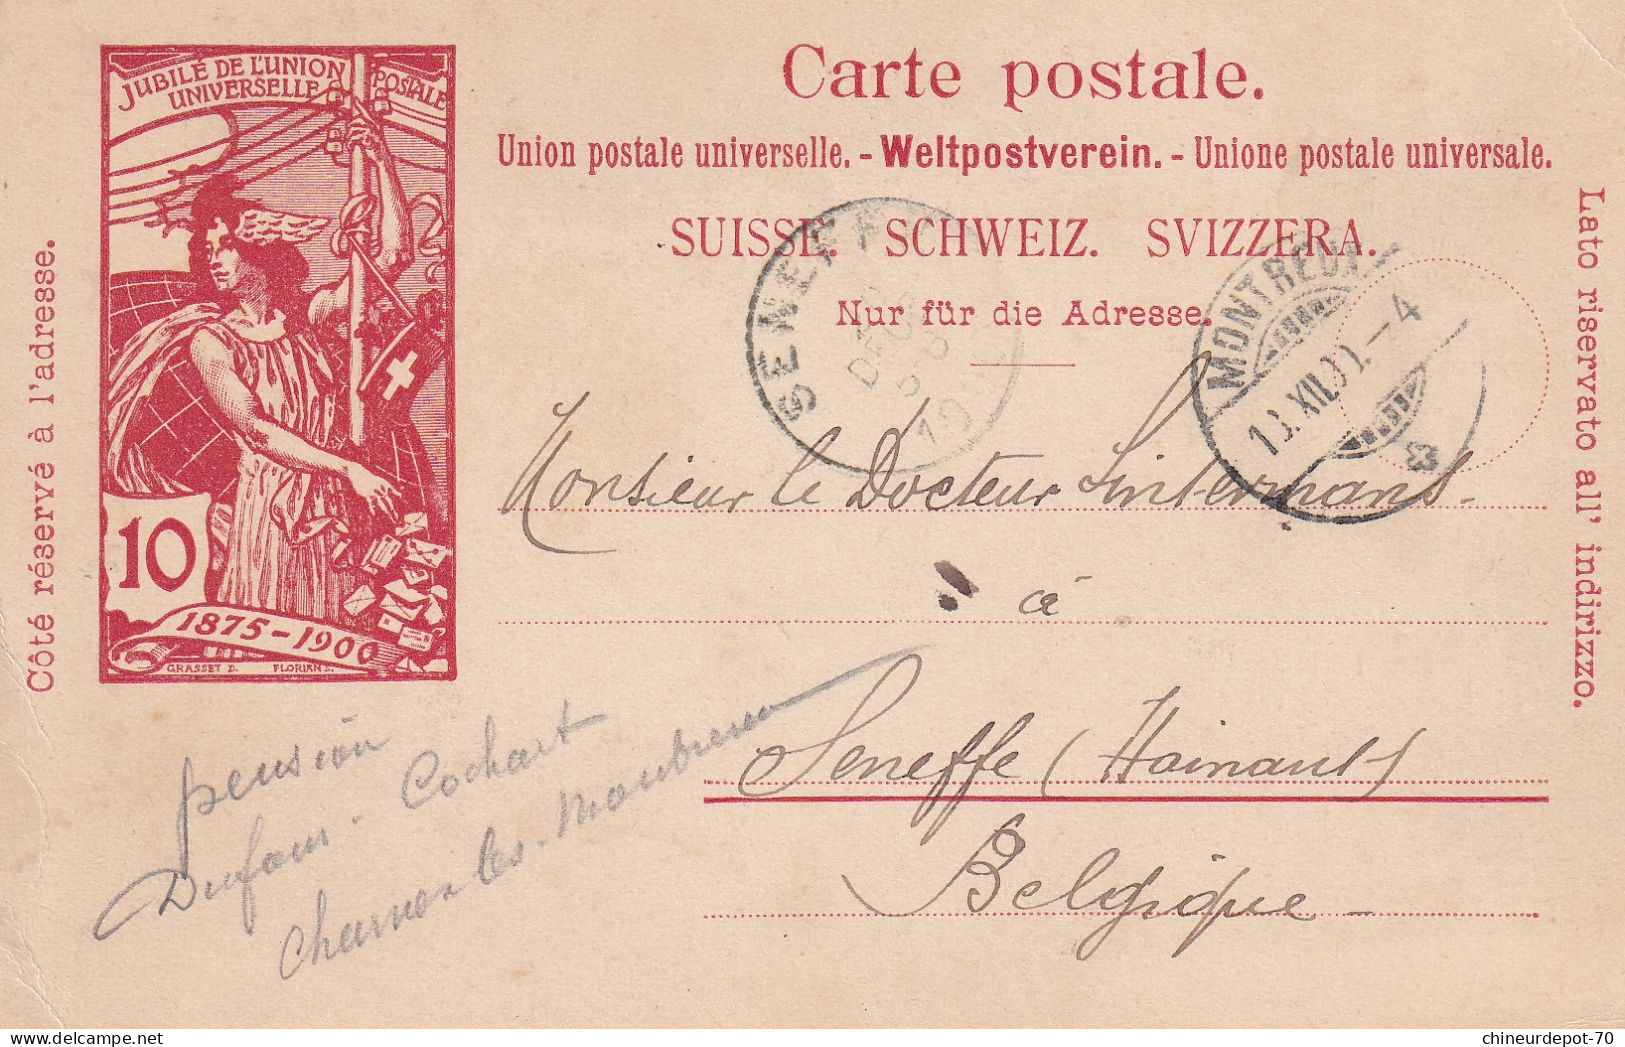 JUBILÉ DE L'UNION POSTALE
UNIVERSELLE
10
1875-1900
GRASSET D. FLORIAN S.
Côté réservé à l'adresse.
Carte postale.
Union postale universelle. - Weltpostverein. - Unione postale universale.
SUISSE. SCHWEIZ. SVIZZERA.
Nur für die Adresse.
Lato riservato all' indirizzo.
SENEFFE
MONTREUX
XII. -4
Monsieur le Docteur Lintermans
à
Seneffe (Hainaut)
Belgique
pension
Dufour - Cochart
les
chineurdepot-70